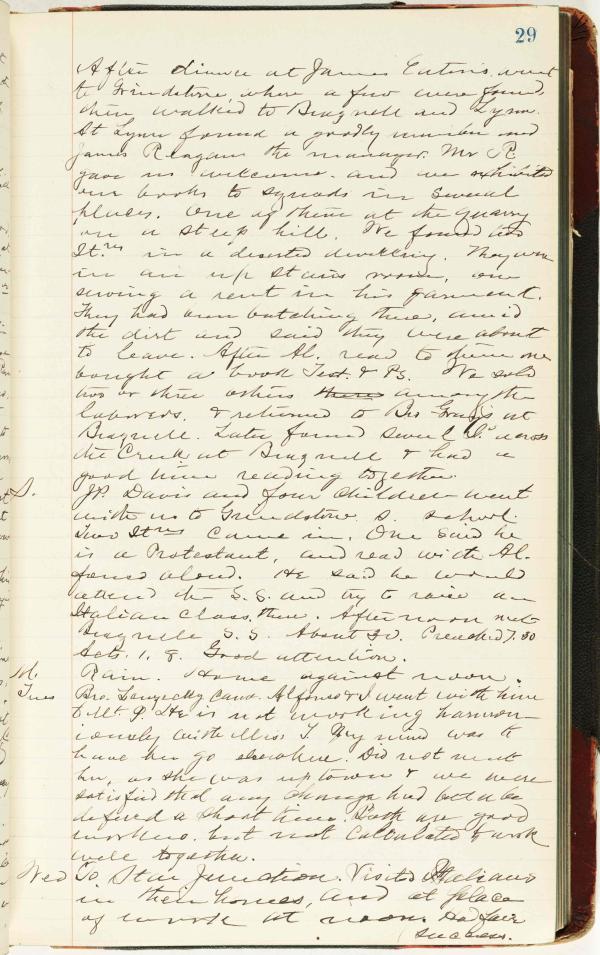 29
After dinner at James Eaton's went
to Grindstone where a few were found,
then walked to Bragnell and Lynn.
At Lynn found a goodly number and
James Reagan the manager. Mr R.
gave us welcome. and we exhibited
our books to squads in several
places. One of them at the quarry
on a steep hill. We found two
Itns in a deserted dwelling. They were
in an up stairs room, one
sewing a rent in his garment.
They had been batching there, amid
the dirt and said they were about
to leave. After Al. read to them one
bought a book Test. & Ps. We sold
two or three others theres among the
laborers, & returned to Bro Gray's at
Bragnell. Later found several Is across
the Creek at Bragnell & had a
good time reading together.
S. J.P. Davis and four children went
with us to Grindstone S. School.
Two Itns came in. One said he
is a Protestant, and read with Al.
fonso aloud. He said he would
attend the S.S. and try to raise an
Italian class there. Afternoon met
Bragnelle S.S. About 30. Preached 7.30
Acts. 1, 8. Good attention.
M. Rain. Home against noon.
Tues Bro. came. Alfonso & I went with him
to Mt. P. He is not working harmon-
iously with Miss T. My mind was to
have her go elsewhere. Did not meet
her, as she was up town & we were
satisfied that any change had better be
defered a short time. Both are good
workers but not calculated to work
well together.
Wed To Star Junction. Visited Italians
in their homes, and at place
of work at noon. Had fair
success.